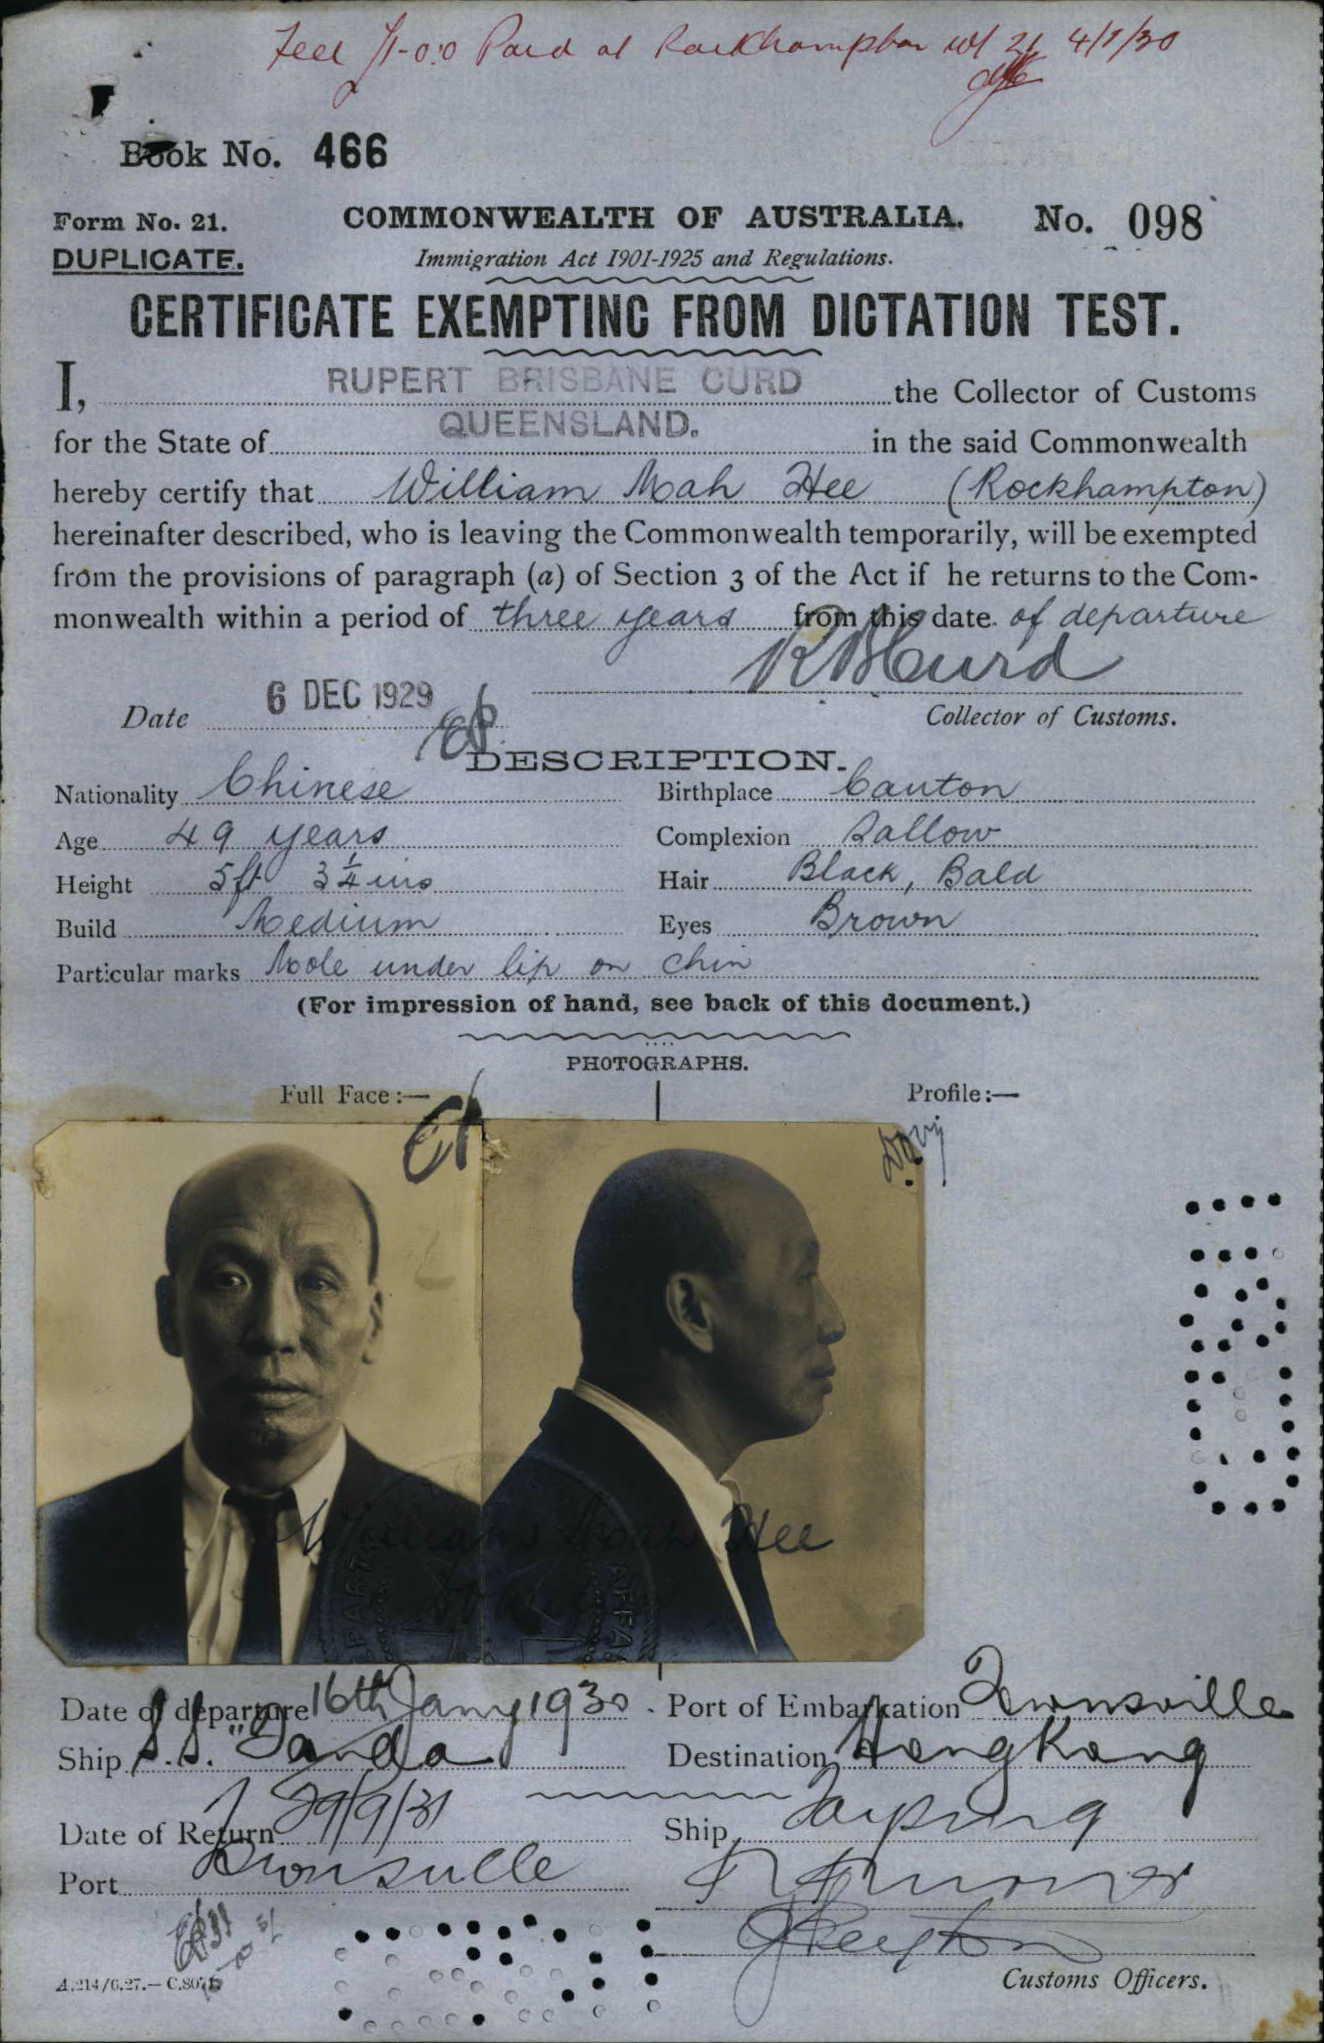 Fee £1-0:0 Paid at Rockhampton 4/1/30
Book No. 466
Form No. 21.
COMMONWEALTH OF AUSTRALIA.
No. 098
DUPLICATE.
Immigration Act 1901-1925 and Regulations.
CERTIFICATE EXEMPTING FROM DICTATION TEST.
I, RUPERT BRISBANE CURD the Collector of Customs
for the State of QUEENSLAND. in the said Commonwealth
hereby certify that William Mah Hee (Rockhampton)
hereinafter described, who is leaving the Commonwealth temporarily, will be exempted
from the provisions of paragraph (a) of Section 3 of the Act if he returns to the Com-
monwealth within a period of three years from this date of departure
R B Curd
Date 6 DEC 1929
Collector of Customs.
DESCRIPTION.
Nationality Chinese Birthplace Canton
Age 49 years Complexion Sallow
Height 5ft 3¼ins Hair Black, Bald
Build Medium Eyes Brown
Particular marks Mole under lip on chin
(For impression of hand, see back of this document.)
PHOTOGRAPHS.
Full Face :— Profile :—
William Mah Hee
Date of departure 16th Jany 1930 Port of Embarkation Townsville
Ship S.S. "Tanda" Destination Hong Kong
Date of Return 29/9/31 Ship Taiping
Port Townsville
Customs Officers.
A.214/6.27.—C.8071